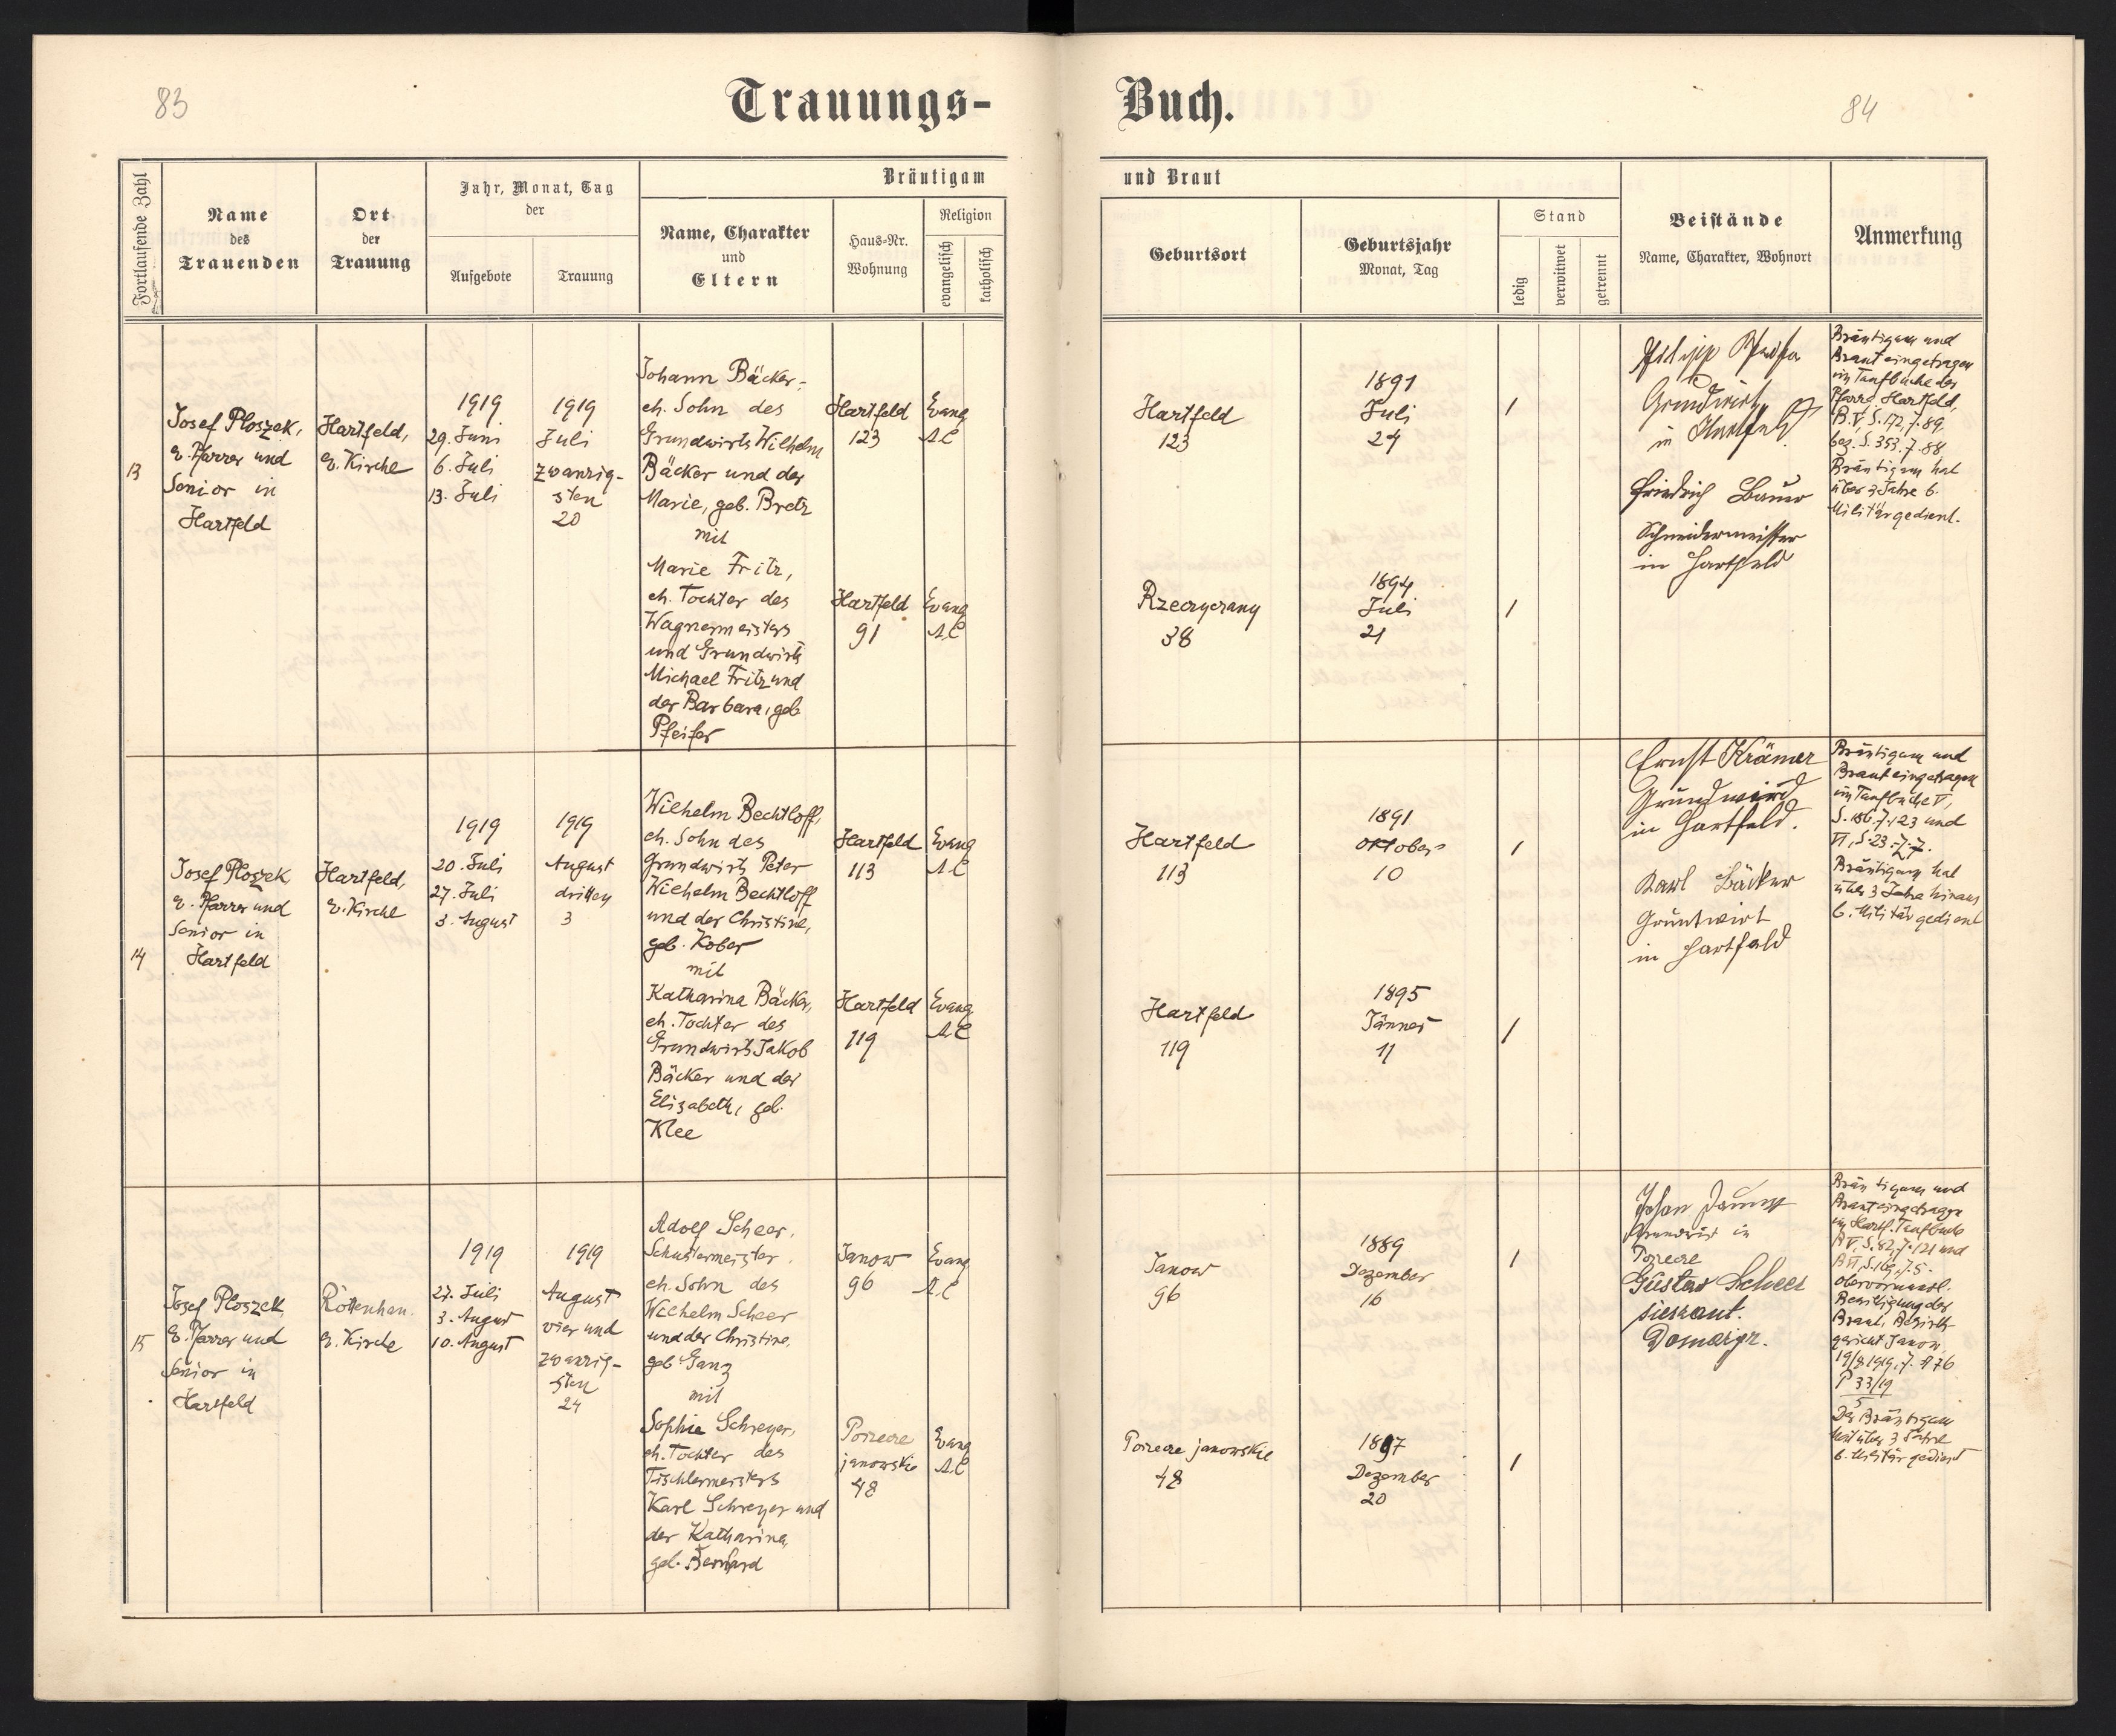 83
Trauungs-
Buch.
84
Fortlaufende Zahl
Name
des
Trauenden
Ort
der
Trauung
Jahr, Monat, Tag
der
Aufgebote
Trauung
Bräutigam
und Braut
Name, Charakter
und
Eltern
Haus-Nr.
Wohnung
Religion
evangelisch
katholisch
Geburtsort
Geburtsjahr
Monat, Tag
Stand
ledig
verwitwet
getrennt
Beistände
Name, Charakter, Wohnort
Anmerkung
13
Josef Ploszek,
ev. Pfarrer und
Senior in
Hartfeld
Hartfeld,
ev. Kirche
1919
29. Juni
6. Juli
13. Juli
1919
Juli
zwanzig-
sten
20
Johann Bäcker,
eh. Sohn des
Grundwirts Wilhelm
Bäcker und der
Marie, geb. Bretz
mit
Marie Fritz,
eh. Tochter des
Wagnermeisters
und Grundwirts
Michael Fritz und
der Barbara, geb
Pfeifer
Hartfeld
123
Evang
A.C
Hartfeld
91
Evang
A.C
Hartfeld
123
1891
Juli
24
/
Rzeczyczany
38
1894
Juli
21
/
Philipp
Grundwirt
in Hartfeld
Friedrich Bauer
Schneidermeister
in Hartfeld
Bräutigam und
Braut eingetragen
im Taufbuche der
Pfarre Hartfeld,
B. V, S. 172, 7. 89,
bez. S. 353. 7. 88
Bräutigam hat
über 3 Jahre b.
Militär gedient.
14
Josef Ploszek,
ev. Pfarrer und
Senior in
Hartfeld
Hartfeld,
ev. Kirche
1919
20. Juli
27. Juli
3. August
1919
August
dritten
3
Wilhelm Bechtloff,
eh. Sohn des
Grundwirts Peter
Wilhelm Bechtloff
und der Christine,
geb. Kober
mit
Katharina Bäcker,
eh. Tochter des
Grundwirts Jakob
Bäcker und der
Elisabeth, geb.
Klee
Hartfeld
113
Evang
A.C
Hartfeld
119
Evang
A.C
Hartfeld
113
1891
Oktober
10
/
Hartfeld
119
1895
Jänner
11
/
Ernst Krämer
Grundwird
in Hartfeld.
Karl Bäcker
Gruntwirt
in Hartfeld
Bräutigam und
Braut eingetragen
im Taufbuche V,
S. 186. 7. 123 und
VI, S. 23. 7. 7.
Bräutigam hat
über 3 Jahre hinaus
b. Militär gedient
15
Josef Ploszek,
ev. Pfarrer und
Senior in
Hartfeld
Rottenhan.
ev. Kirche
1919
27. Juli
3. August
10. August
1919
August
vier und
zwanzig-
sten
24
Adolf Scheer,
Schustermeister,
eh. Sohn des
Wilhelm Scheer
und der Christine,
geb Ganz
mit
Sophie Schreyer,
eh. Tochter des
Tischlermeisters
Karl Schreyer und
der Katharina,
geb. Bernhard
Janow
96
Evang
A.C
Porzecze
janowskie
48
Evang
A.C
Janow
96
1889
Dezember
16
/
Porzecze janowskie
48
1897
Dezember
20
/
Johan
Grundwirt in
Porzecze
Gustav Scheer
Domazyr.
Bräutigam und
Braut eingetragen
im Hartf. Taufbuch
B V, S. 82, 7. 121 und
B VI, S. 169, 7. 5.
obervormundl.
Bewilligung der
Braut, Bezirks-
gericht Janow,
19/8 1919, 7.
P 33/19
5
Der Bräutigam
hat über 3 Jahre
b. Militär gedient